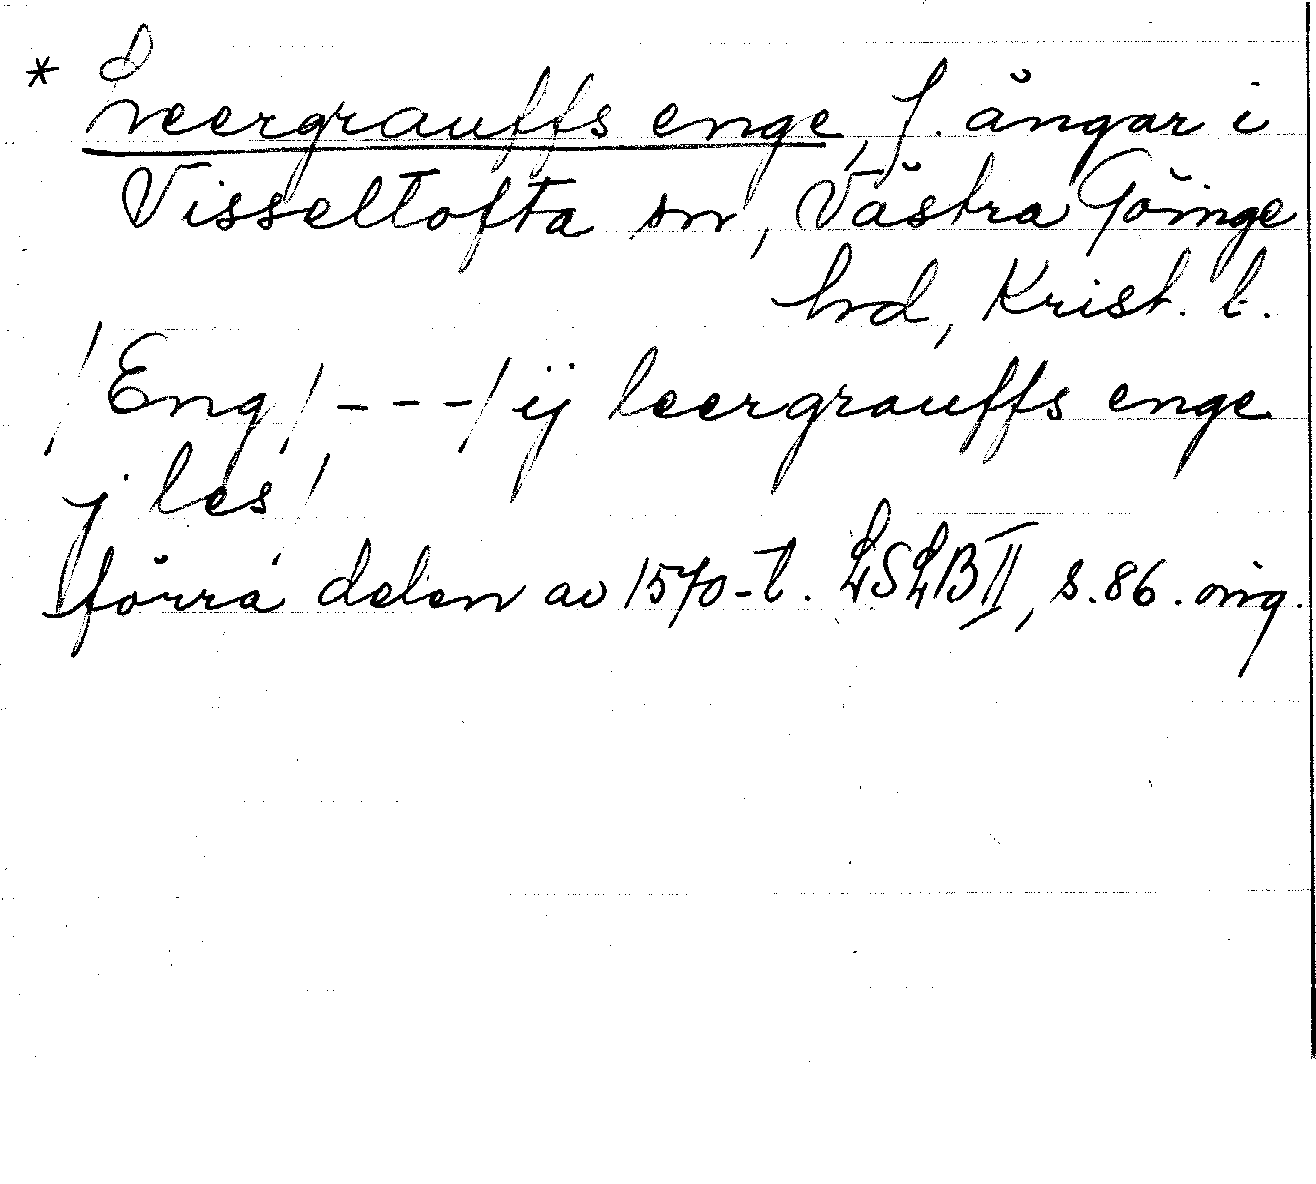 * Leergrauffs enge, f. ängar i
Visseltofta sn, Västra Göinge
hd, Krist. l.
/Eng/ - - - / ij leergrauffs enge
j les /
förra delen av 1570-t. LSLB II, s. 86. orig.